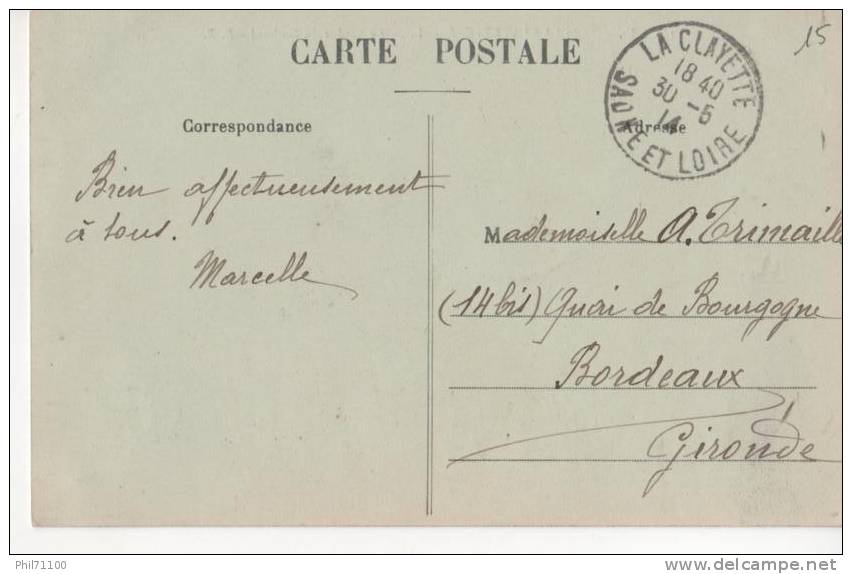 CARTE POSTALE
15
LA CLAYETTE
18 40
30 - 6
14
SAONE ET LOIRE
Correspondance
Adresse
Bien affectueusement
à tous.
Marcelle
Mademoiselle A. Trimaille
(14 bis) Quai de Bourgogne
Bordeaux
Gironde
Phil71100
www.delcampe.net